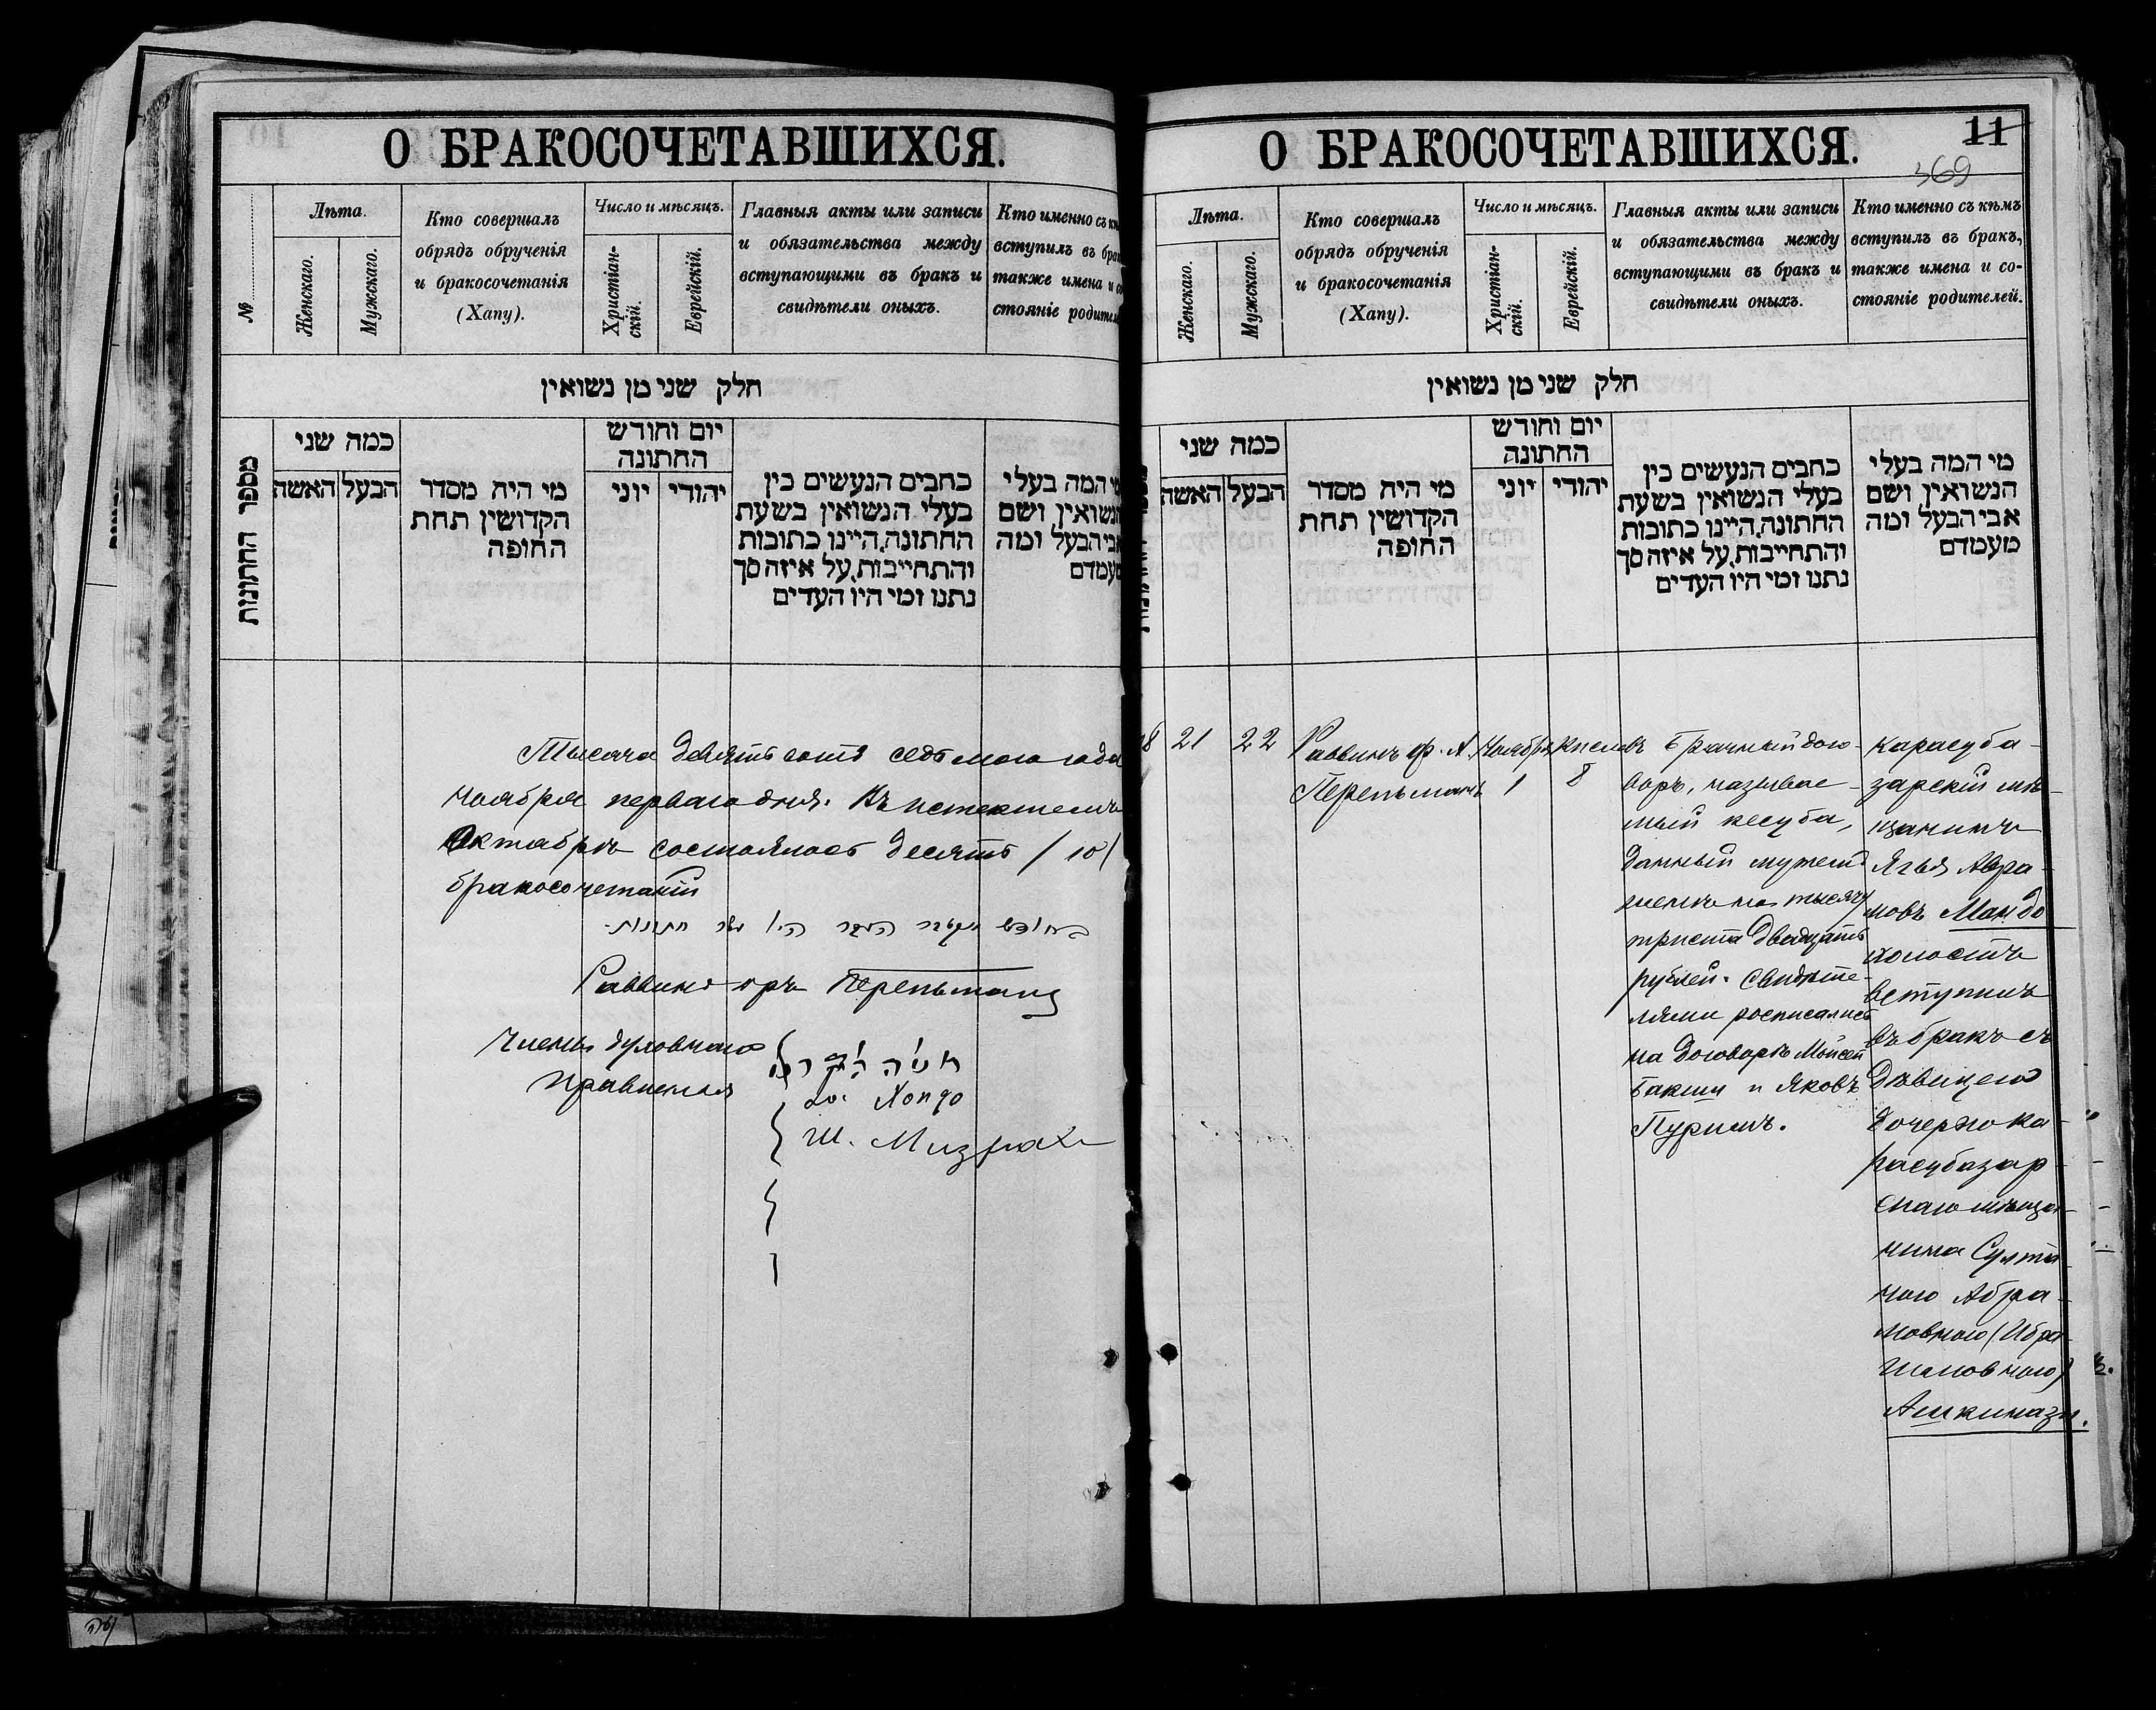 О БРАКОСОЧЕТАВШИХСЯ.
№
Лѣта.
Женскаго.
Мужскаго.
Кто совершалъ
обрядъ обрученія
и бракосочетанія
(Хапу).
Число и мѣсяцъ.
Христіан-
скій.
Еврейскій.
Главныя акты или записи
и обязательства между
вступающими въ бракъ и
свидѣтели оныхъ.
Кто именно съ
вступилъ въ
также имена и
стояніе
חלק שני מן נשואין
מספר החתונות
כמה שני
האשה
הבעל
מי היה מסדר
הקדושין תחת
החופה
יום וחודש
החתונה
יוני
יהודי
כתבים הנעשים בין
בעלי הנשואין בשעת
החתונה, היינו כתובות
והתחייבות, על איזה סך
נתנו ומי היו העדים
מי המה בעלי
הנשואין, ושם
אבי הבעל ומה
מעמדם
Тысяча девятьсотъ седьмого года
ноября перваго дня. Въ истекшемъ
Октябрѣ состоялось десять /10/
бракосочетаній
בחודש היו חתונות.
Раввинъ Перельманъ
Члены духовнаго
правленія
Хондо
Ш. Мизрахи
О БРАКОСОЧЕТАВШИХСЯ.
11
369
Лѣта.
Женскаго.
Мужскаго.
Кто совершалъ
обрядъ обрученія
и бракосочетанія
(Хапу).
Число и мѣсяцъ.
Христіан-
скій.
Еврейскій.
Главныя акты или записи
и обязательства между
вступающими въ бракъ и
свидѣтели оныхъ.
Кто именно съ кѣмъ
вступилъ въ бракъ,
также имена и со-
стояніе родителей.
חלק שני מן נשואין
כמה שני
האשה
הבעל
מי היה מסדר
הקדושין תחת
החופה
יום וחודש
החתונה
יוני
יהודי
כתבים הנעשים בין
בעלי הנשואין בשעת
החתונה, היינו כתובות
והתחייבות, על איזה סך
נתנו ומי היו העדים
מי המה בעלי
הנשואין ושם
אבי הבעל ומה
מעמדם
8
21
22
Раввинъ Ф. А.
Перельманъ
Ноября
1
Кислевъ
8
Брачный дого-
воръ, называе-
мый кесуба,
данный мужемъ
женѣ на тысячу
триста двадцать
рублей. Свидѣте-
лями росписались
на договорѣ Мойсей
Бакши и Яковъ
Пуримъ.
Карасуба-
зарскій мѣ-
щанинъ
Ягья Авра-
мовъ Мандо
холостъ
вступилъ
въ бракъ съ
дѣвицею
дочерью ка-
расубазар-
скаго мѣща-
нина Султа-
ною Абра-
мовною (Ибра-
гимовною)
Ашкинази.